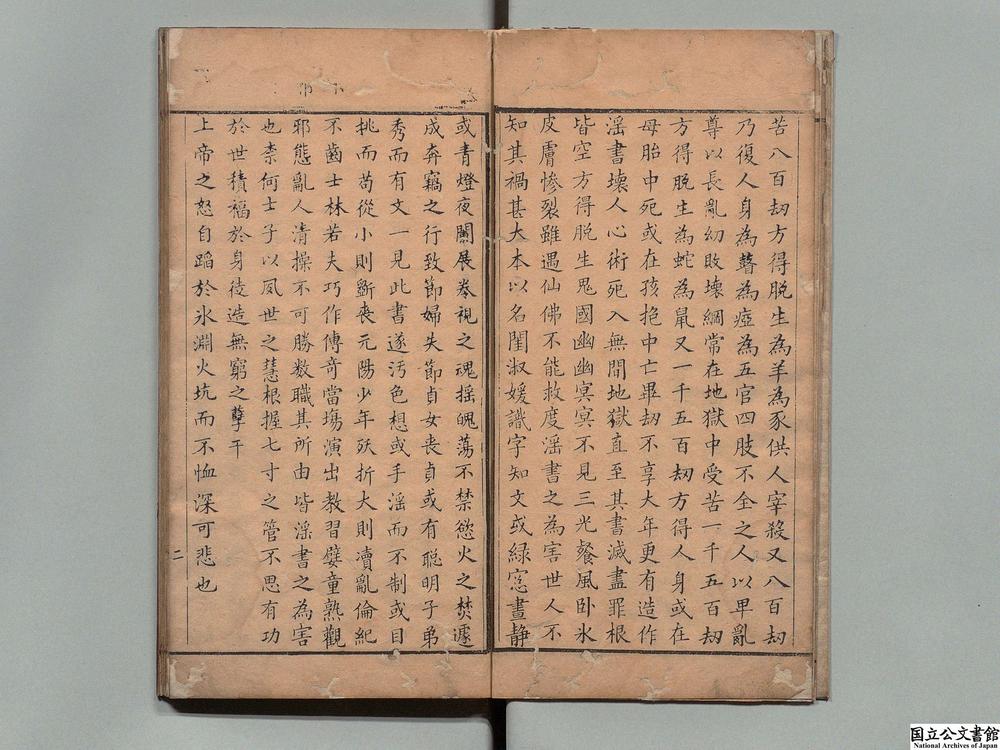 苦八百刼方得脱生為羊為豕供人宰殺又八百刼
乃復人身為瞽為瘂為五官四肢不全之人以卑亂
尊以長亂幼敗壞綱常在地獄中受苦一千五百刼
方得脱生為蛇為鼠又一千五百刼方得人身或在
母胎中死或在孩抱中亡畢刼不享大年更有造作
淫書壞人心術死入無間地獄直至其書滅盡罪根
皆空方得脱生鬼國幽幽冥冥不見三光餐風卧氷
皮膚慘裂雖遇仙佛不能救度淫書之為害世人不
知其禍甚大本以名閨淑媛識字知文或緑窓晝静
或青燈夜闌展巻視之魂揺魄蕩不禁慾火之焚遽
成奔竊之行致節婦失節貞女丧貞或有聡明子弟
秀而有文一見此書遂汚色想或手淫而不制或目
挑而苟從小則斵丧元陽少年殀折大則瀆亂倫紀
不齒士林若夫巧作傳竒當塲演出教習嬖童熟觀
邪態亂人清操不可勝數職其所由皆淫書之為害
也柰何士子以夙世之慧根握七寸之管不思有功
於世積福於身徒造無窮之孽干
上帝之怒自蹈於氷淵火坑而不恤深可悲也
二
国立公文書館
National Archives of Japan